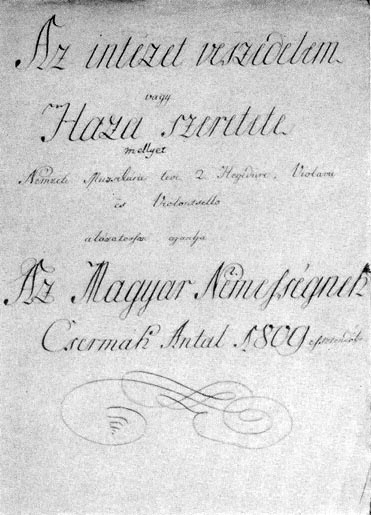 Az intézet veszedelem
vagy
Haza szeretete
mellyet
Nemzeti Muzsikára tévé 2 Hegedűre, Violára
és Violontsello
ajánlja
Az Magyar Nemességnek
Csermák Antal 1809